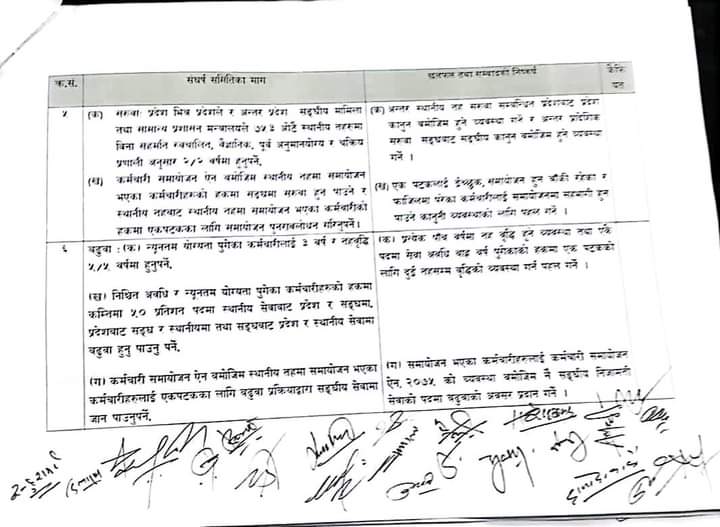 क्र.सं.
संघर्ष समितिका माग
छलफल तथा सम्वादको निष्कर्ष
कैफियत
५
(क) सरुवाः प्रदेश भित्र प्रदेशले र अन्तर प्रदेश सङ्घीय मामिला
तथा सामान्य प्रशासन मन्त्रालयले ७५३ ओटै स्थानीय तहरुमा
बिना सहमति स्वचालित, वैज्ञानिक, पूर्व अनुमानयोग्य र चक्रिय
प्रणाली अनुसार २/२ वर्षमा हुनुपर्ने.
(ख) कर्मचारी समायोजन ऐन बमोजिम स्थानीय तहमा समायोजन
भएका कर्मचारीहरुको हकमा सङघमा सरुवा हुन पाउने र
स्थानीय तहबाट स्थानीय तहमा समायोजन भएका कर्मचारीको
हकमा एकपटकका लागि समायोजन पुनरावलोधन गरिनुपर्ने।
(क) अन्तर स्थानीय तह सरुवा सम्बन्धित प्रदेशबाट प्रदेश
कानुन बमोजिम हुने व्यवस्था गर्ने र अन्तर प्रादेशिक
सरुवा सङ्घबाट सङ्घीय कानुन बमोजिम हुने व्यवस्था
गर्ने ।
(ख) एक पटकलाई ईच्छुक, समायोजन हुन बाँकी रहेका र
फाजिलमा परेका कर्मचारीलाई समायोजनमा सहभागी हुन
पाउने कानुनी व्यवस्थाको लागि पहल गर्ने ।
६
बढुवा : (क) न्यूनतम योग्यता पुगेका कर्मचारीलाई ३ वर्ष र तहवृद्धि
५/५ वर्षमा हुनुपर्ने.
(ख) निश्चित अवधि र न्यूनतम योग्यता पुगेका कर्मचारीहरुको हकमा
कम्तिमा ५० प्रतिशत पदमा स्थानीय सेवाबाट प्रदेश र सङ्घमा,
प्रदेशबाट सङ्घ र स्थानीयमा तथा सङ्घबाट प्रदेश र स्थानीय सेवामा
बढुवा हुनु पाउनु पर्ने.
(ग) कर्मचारी समायोजन ऐन बमोजिम स्थानीय तहमा समायोजन भएका
कर्मचारीहरुलाई एकपटकका लागि बढुवा प्रक्रियाद्वारा सङ्घीय सेवामा
जान पाउनुपर्ने.
(क) प्रत्येक पाँच वर्षमा तह वृद्धि हुने व्यवस्था तथा एकै
पदमा सेवा अवधि बाह्र वर्ष पुगेकाको हकमा एक पटकको
लागि दुई तहसम्म वृद्धिको व्यवस्था गर्न पहल गर्ने ।
(ग) समायोजन भएका कर्मचारीहरुलाई कर्मचारी समायोजन
ऐन, २०७५ को व्यवस्था बमोजिम नै सङ्घीय निजामती
सेवाको पदमा बढुवाको अवसर प्रदान गर्ने ।